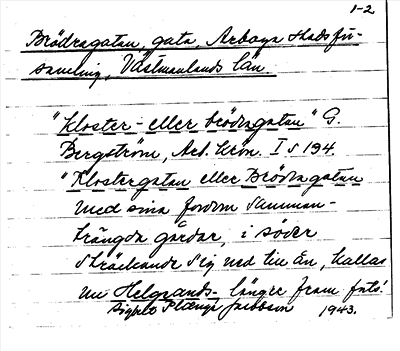 1-2
Brödragatan, gata, Arboga stadsför-
samling, Västmanlands län
"Kloster- eller brödragatan" G.
Bergström, Arb. Krön. I s 194.
"Klostergatan eller Brödragatan
med sina fordom samman-
trängda gårdar, i söder
sträckande sig ned till ån, kallas
nu Helgeands- längre fram
1943.